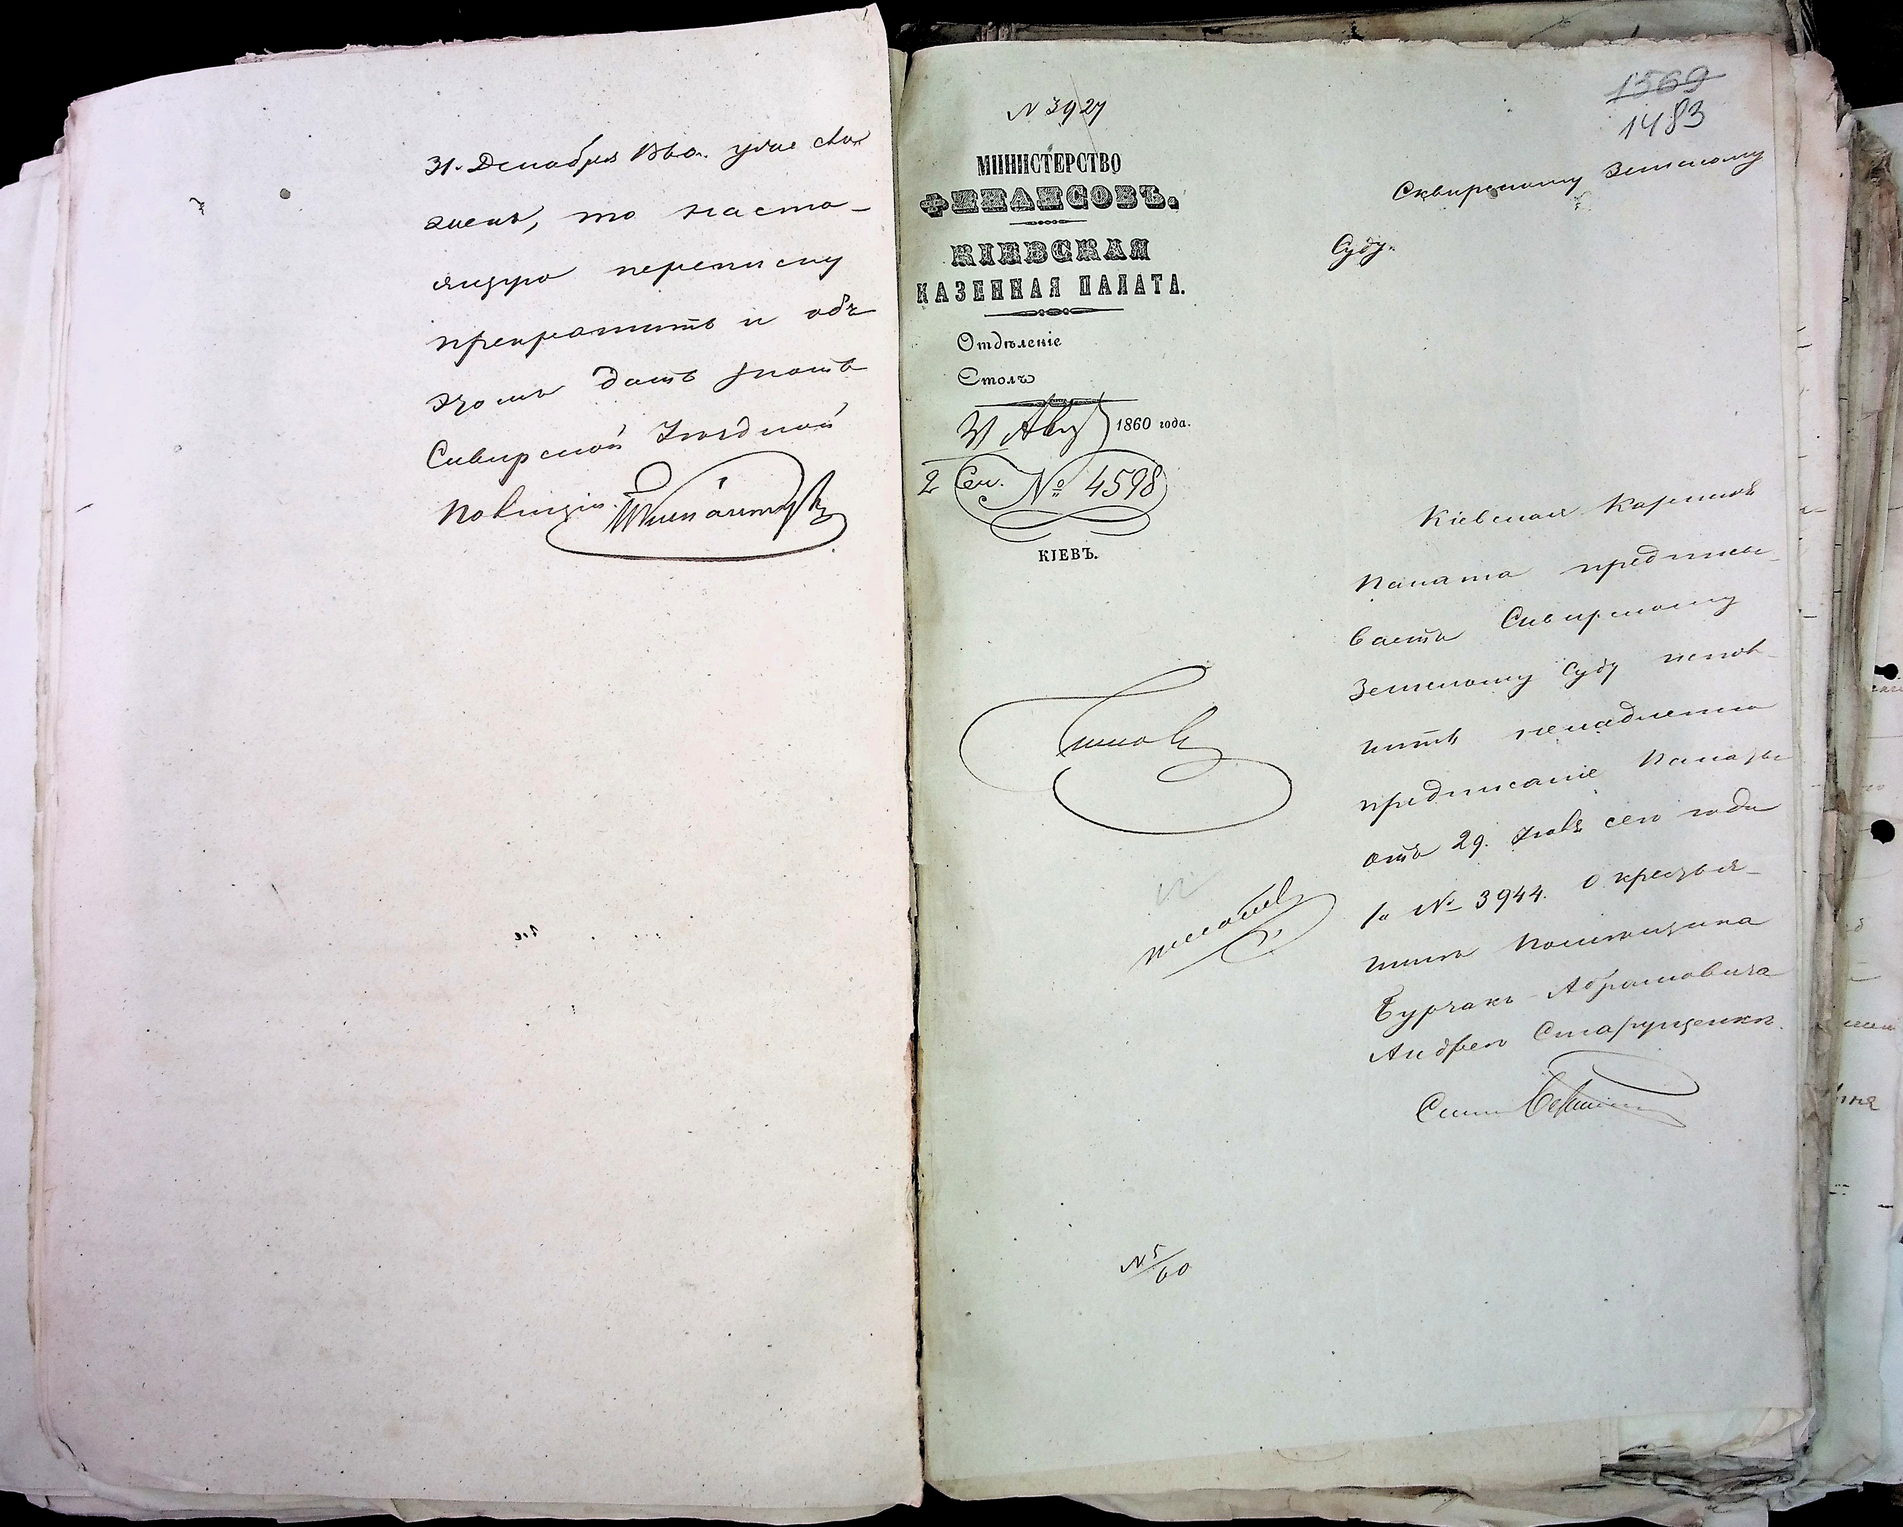 31. Декабря 1860. уже сло
женъ, то насто-
ящую переписку
прекратить и объ
этомъ дать знать
Сквирской Уездной
Полиціи.
N 3927
МИНИСТЕРСТВО
ФИНАНСОВЪ.
КІЕВСКАЯ
КАЗЕННАЯ ПАЛАТА.
Отдѣленіе
Столъ
31 Авг 1860 года.
2 Сен. № 4598
КІЕВЪ.
N 5/60
1569
1483
Сквирскому Земскому
Суду.
Кіевская Казенная
Палата предписы-
ваетъ Сквирскому
Земскому Суду испол-
нить немедленно
предписаніе Палаты
отъ 29. Іюля сего года
за № 3944. о крестья-
нинѣ помѣщика
Бурчакъ-Абрамовича
Андрея Старущенкѣ.